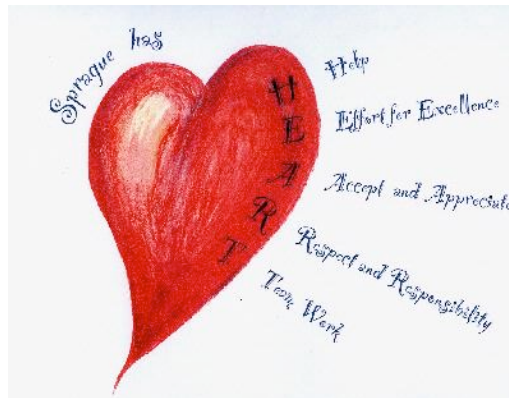 Sprague has
H
E
A
R
T
Help
Effort for Excellence
Accept and Appreciate
Respect and Responsibility
Team Work